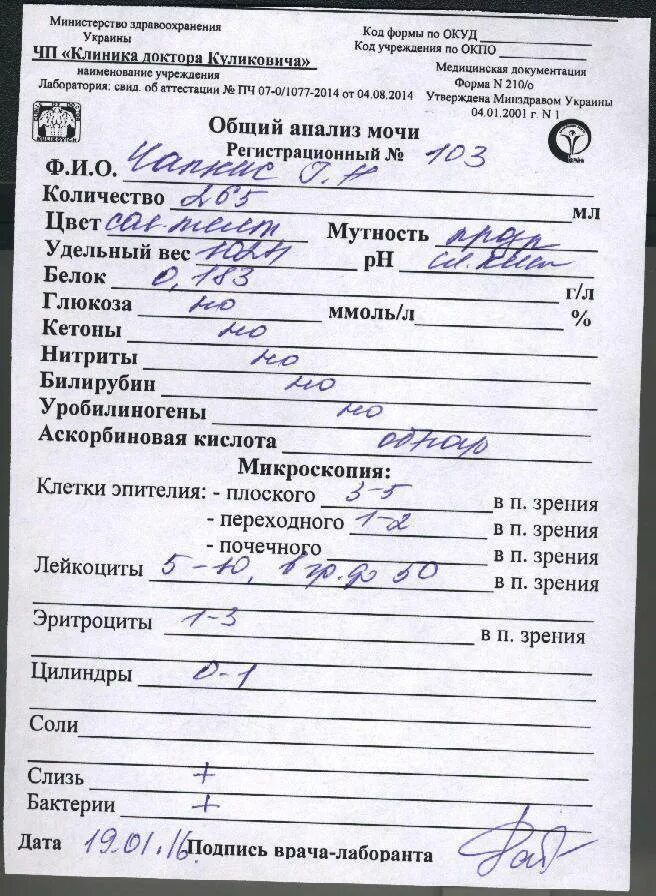 Министерство здравоохранения
Украины
ЧП «Клиника доктора Куликовича»
наименование учреждения
Код формы по ОКУД
Код учреждения по ОКПО
Медицинская документация
Форма N 210/о
Лаборатория: свид. об аттестации № ПЧ 07-0/1077-2014 от 04.08.2014
Утверждена Минздравом Украины
04.01.2001 г. N 1
KULIKOVICH
Общий анализ мочи
Регистрационный № 103
Ф.И.О. Чапкис Г. Н
Количество 265 мл
Цвет сол. желт Мутность прозр
Удельный вес рН сл. кисл
Белок 0,183 г/л
Глюкоза но ммоль/л %
Кетоны но
Нитриты но
Билирубин но
Уробилиногены но
Аскорбиновая кислота обнар
Микроскопия:
Клетки эпителия: - плоского 3-5 в п. зрения
- переходного 1-2 в п. зрения
- почечного в п. зрения
Лейкоциты 5-10, в гр. до 50 в п. зрения
Эритроциты 1-3 в п. зрения
Цилиндры 0-1
Соли
Слизь +
Бактерии +
Дата 19.01.16. Подпись врача-лаборанта